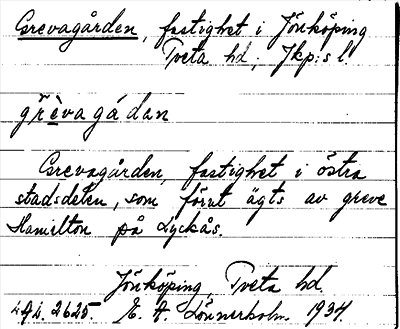 Grevagården, fastighet i Jönköping
Tveta hd, Jkp:s l.
grèvagádan
Grevagården, fastighet i östra
stadsdelen, som förut ägts av greve
Hamilton på Lyckås.
Jönköping, Tveta hd.
2625. E. A. Lönnerholm. 1934.